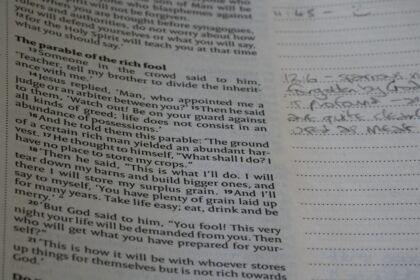 of Man will be
not be forgiven
will be brought before synagogues,
and authorities, do not worry about how
you will defend yourselves or what you will say,
12 for the Holy Spirit will teach you at that time
what you should say.'
The parable of the rich fool
13 Someone in the crowd said to him,
'Teacher, tell my brother to divide the inherit-
ance with me.'
14 Jesus replied, 'Man, who appointed me a
judge or an arbiter between you?' 15 Then he said
to them, 'Watch out! Be on your guard against
all kinds of greed; life does not consist in an
abundance of possessions.'
16 And he told them this parable: 'The ground
of a certain rich man yielded an abundant har-
vest. 17 He thought to himself, "What shall I do? I
have no place to store my crops."
18 'Then he said, "This is what I'll do. I will
tear down my barns and build bigger ones, and
there I will store my surplus grain. 19 And I'll
say to myself, 'You have plenty of grain laid up
for many years. Take life easy; eat, drink and be
merry.'"
20 'But God said to him, "You fool! This very
night your life will be demanded from you. Then
who will get what you have prepared for your-
self?"
21 'This is how it will be with whoever stores
up things for themselves but is not rich towards
God.'
11:45 -
12:6 - Sparrows
forgotten by God
is profound
are quite
used as